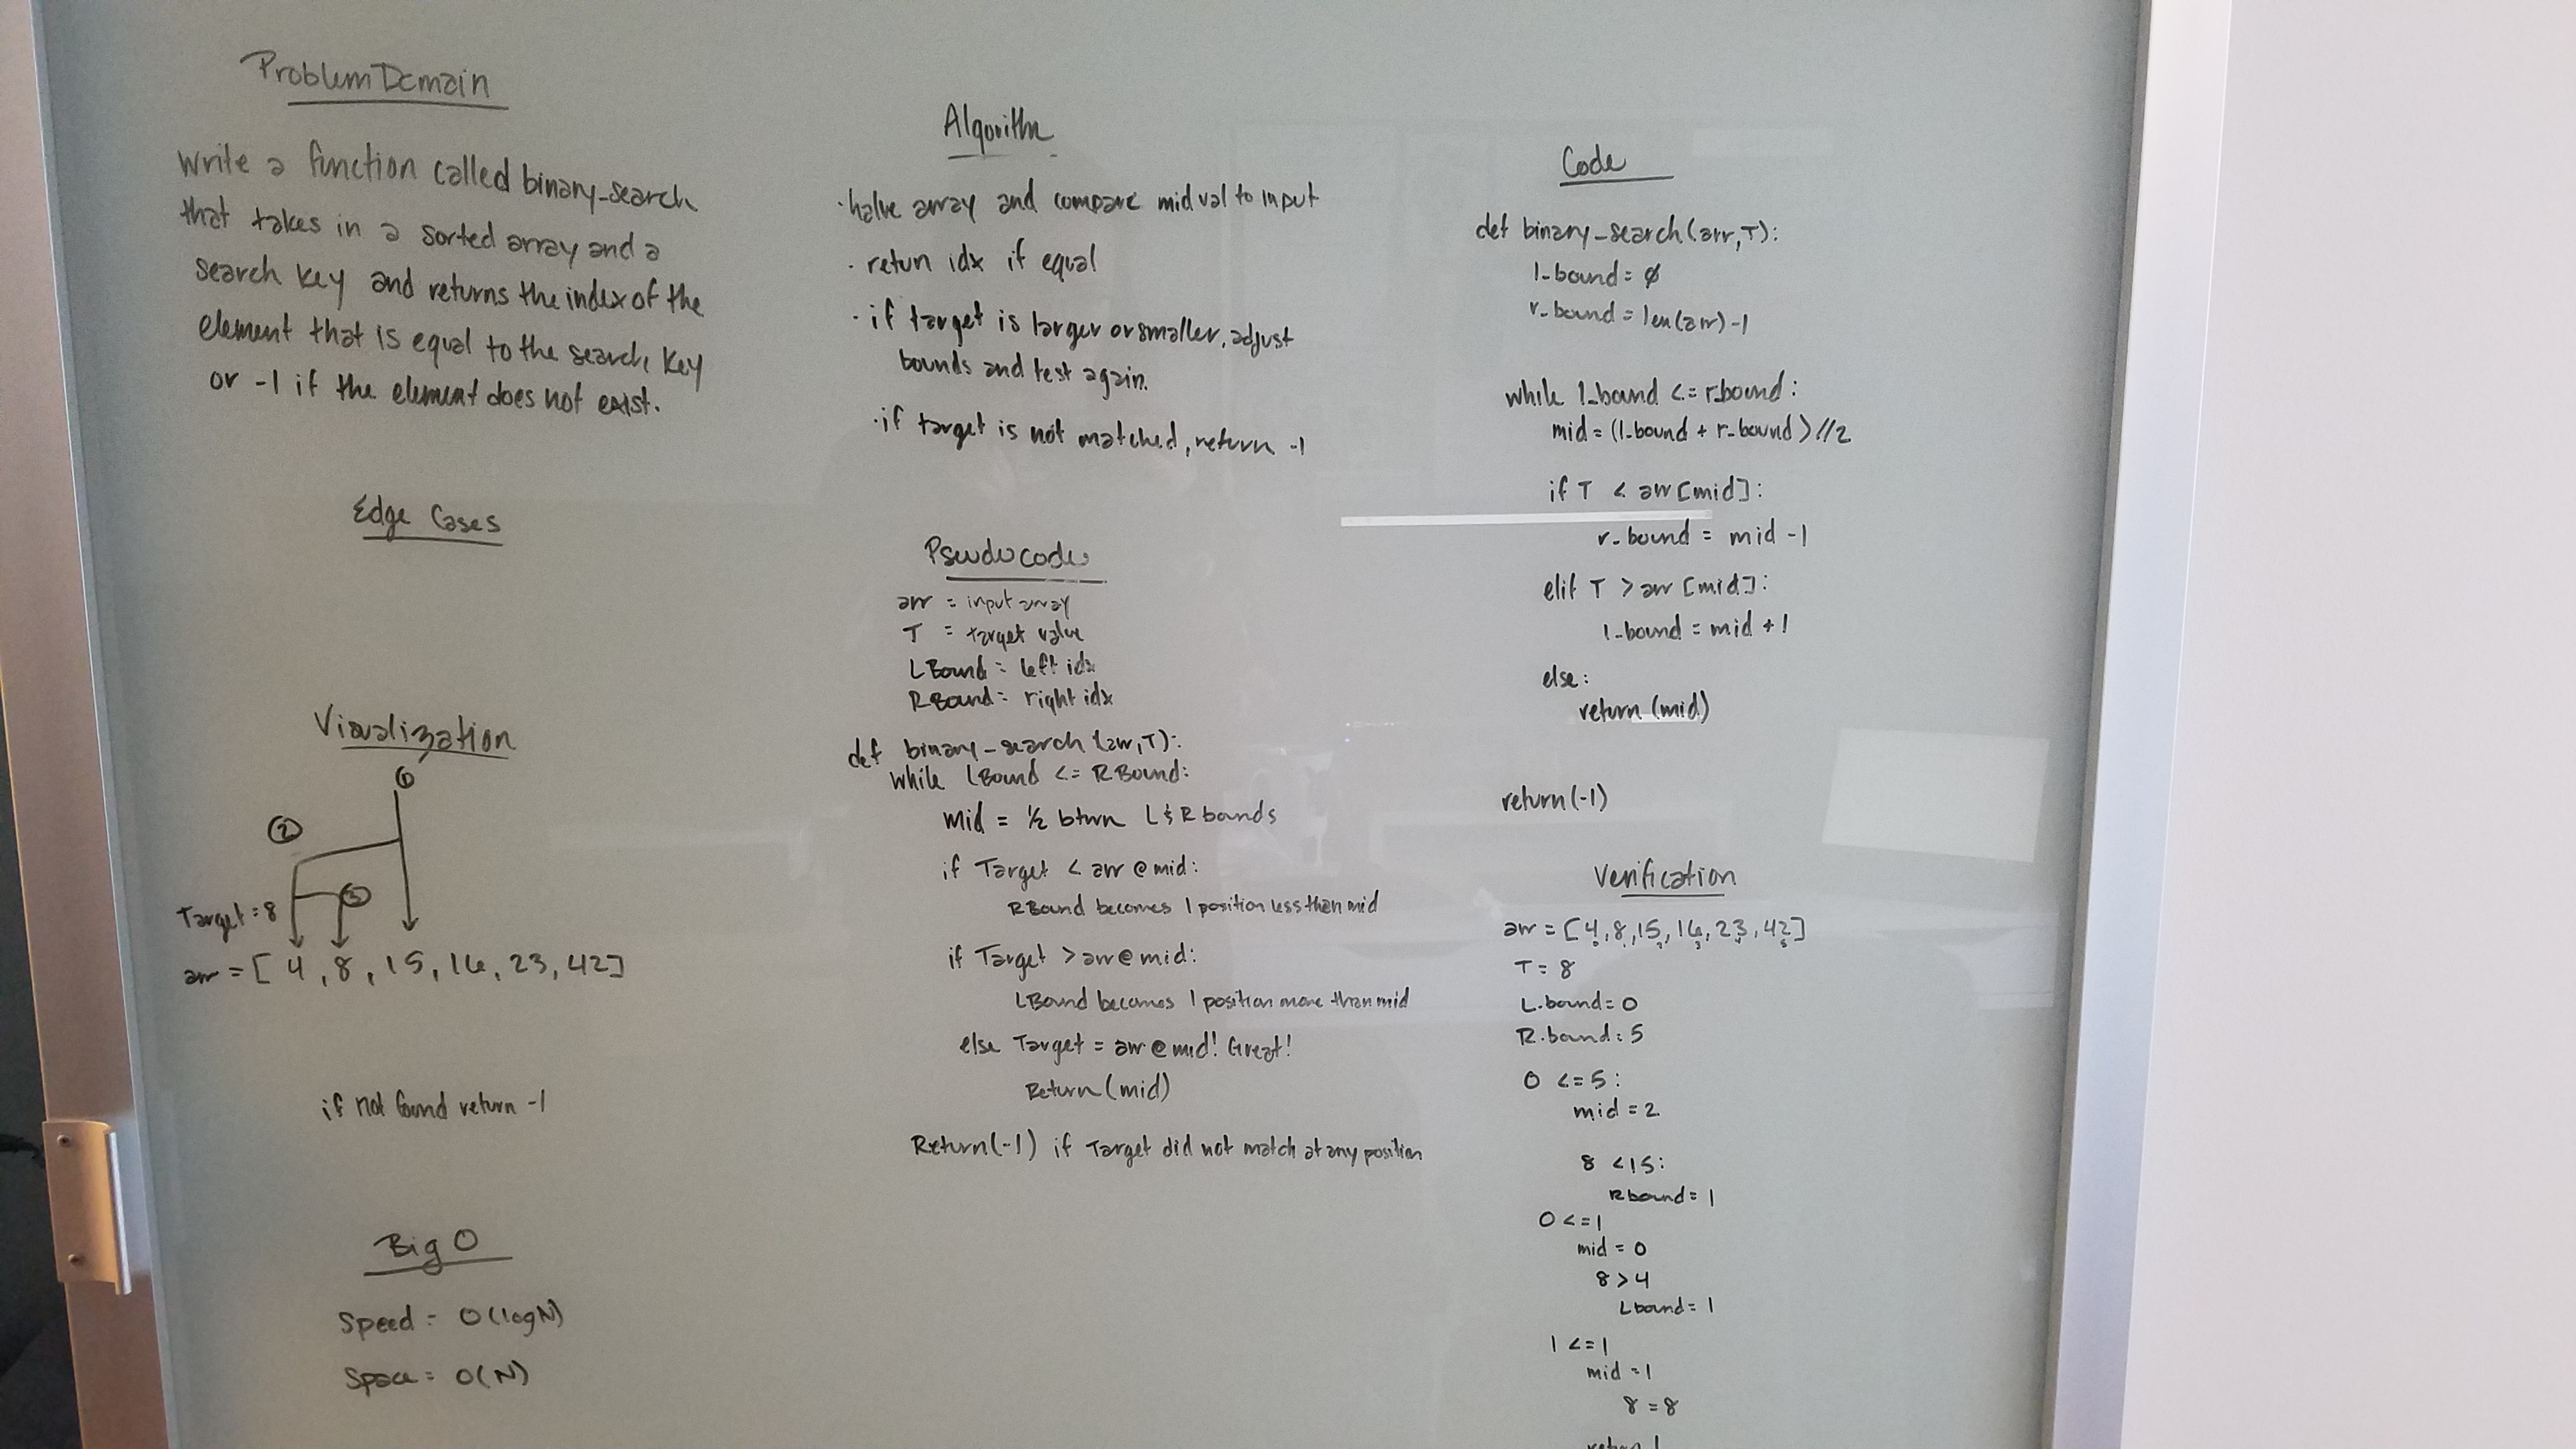 Problem Domain
Write a function called binary_search
that takes in a sorted array and a
search key and returns the index of the
element that is equal to the search key
or -1 if the element does not exist.
Edge Cases
Visualization
1
2
3
Target = 8
arr = [ 4, 8, 15, 16, 23, 42]
if not found return -1
Big O
Speed = O(logN)
Space = O(N)
Algorithm
· halve array and compare mid val to input
· retun idx if equal
· if target is larger or smaller, adjust
bounds and test again.
· if target is not matched, return -1
Pseudocode
arr = input array
T = target value
LBound = left idx
RBound = right idx
def binary_search (arr,T):
while LBound <= RBound:
mid = 1/2 btwn L & R bounds
if Target < arr @ mid:
RBound becomes 1 position less than mid
if Target > arr @ mid:
LBound becomes 1 position more than mid
else Target = arr @ mid! Great!
Return (mid)
Return(-1) if Target did not match at any position
Code
def binary_search(arr,T):
l_bound = 0
r_bound = len(arr)-1
while l_bound <= r_bound:
mid = (l_bound + r_bound)//2
if T < arr[mid]:
r_bound = mid -1
elif T > arr [mid]:
l_bound = mid +1
else:
return (mid)
return(-1)
Verification
arr = [4, 8, 15, 16, 23, 42]
0 1 2 3 4 5
T = 8
L.bound = 0
R.bound = 5
0 <= 5:
mid = 2
8 < 15:
Rbound = 1
0 <= 1
mid = 0
8 > 4
Lbound = 1
1 <= 1
mid = 1
8 = 8
return 1